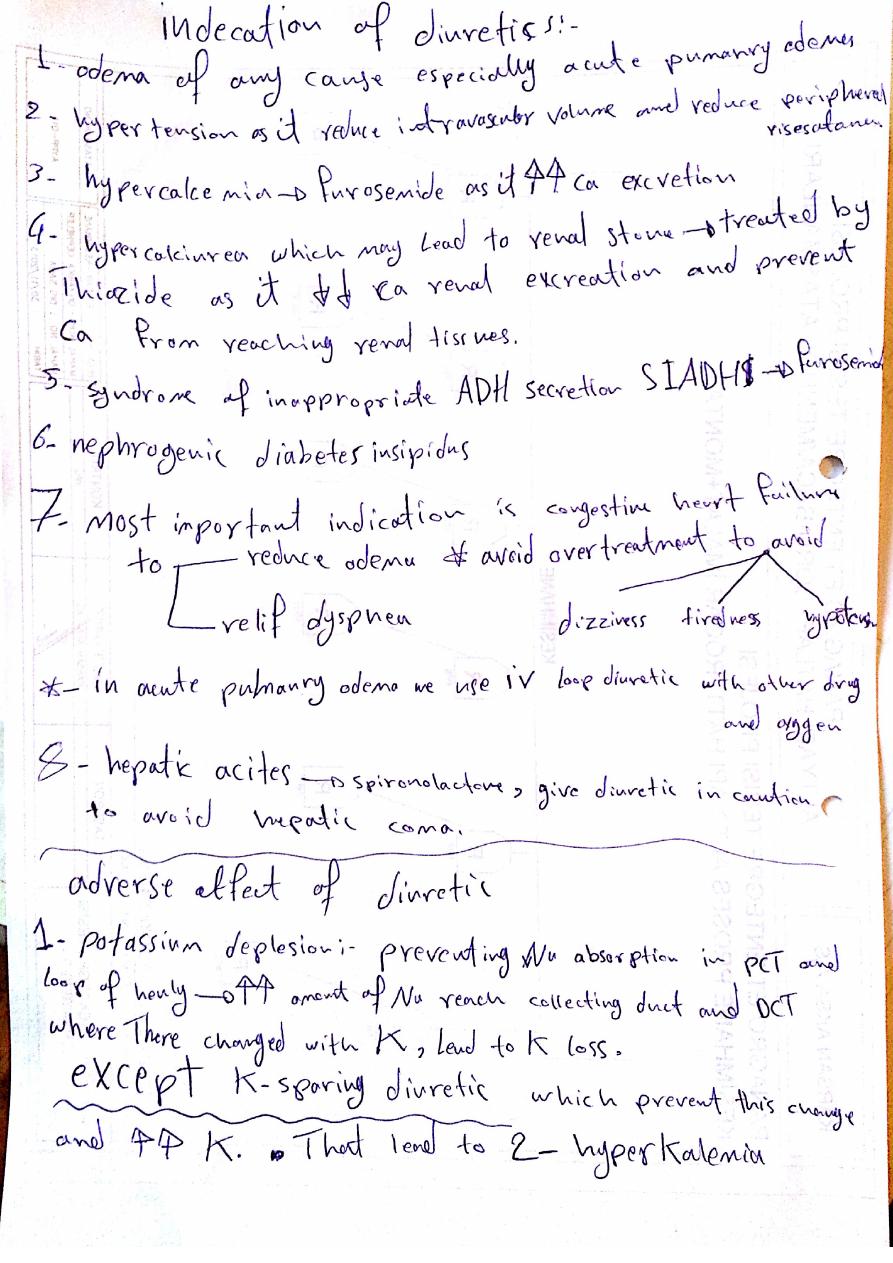 indecation of diuretics:-
1- odema of any cause especially acute pumanry edemes
2- hypertension as it reduce intravascular volume and reduce peripheral
risesatance
3- hypercalcemia → furosemide as it ↑↑ Ca excretion
4- hypercalciurea which may Lead to renal stone → treated by
Thiazide as it ↓↓ Ca renal excreation and prevent
Ca from reaching renal tissues.
5- syndrome of inappropriate ADH secretion SIADH → furosemid
6- nephrogenic diabetes insipidus
7- most important indication is congestive heart failure
to reduce odema * avoid overtreatment to avoid
relif dyspnea dizziness tiredness hypotension
*- in acute pulmanry odema we use iv loop diuretic with other drug
and oxygen
8- hepatic acites → spironolactone, give diuretic in caution
to avoid hepatic coma.
adverse effect of diuretic
1- potassium deplesion:- preventing Na absorption in PCT and
loop of henly → ↑↑ amont of Na reach collecting duct and DCT
where There changed with K, lead to K loss.
except K-sparing diuretic which prevent this change
and ↑↑ K. That lead to 2- hyperkalemia